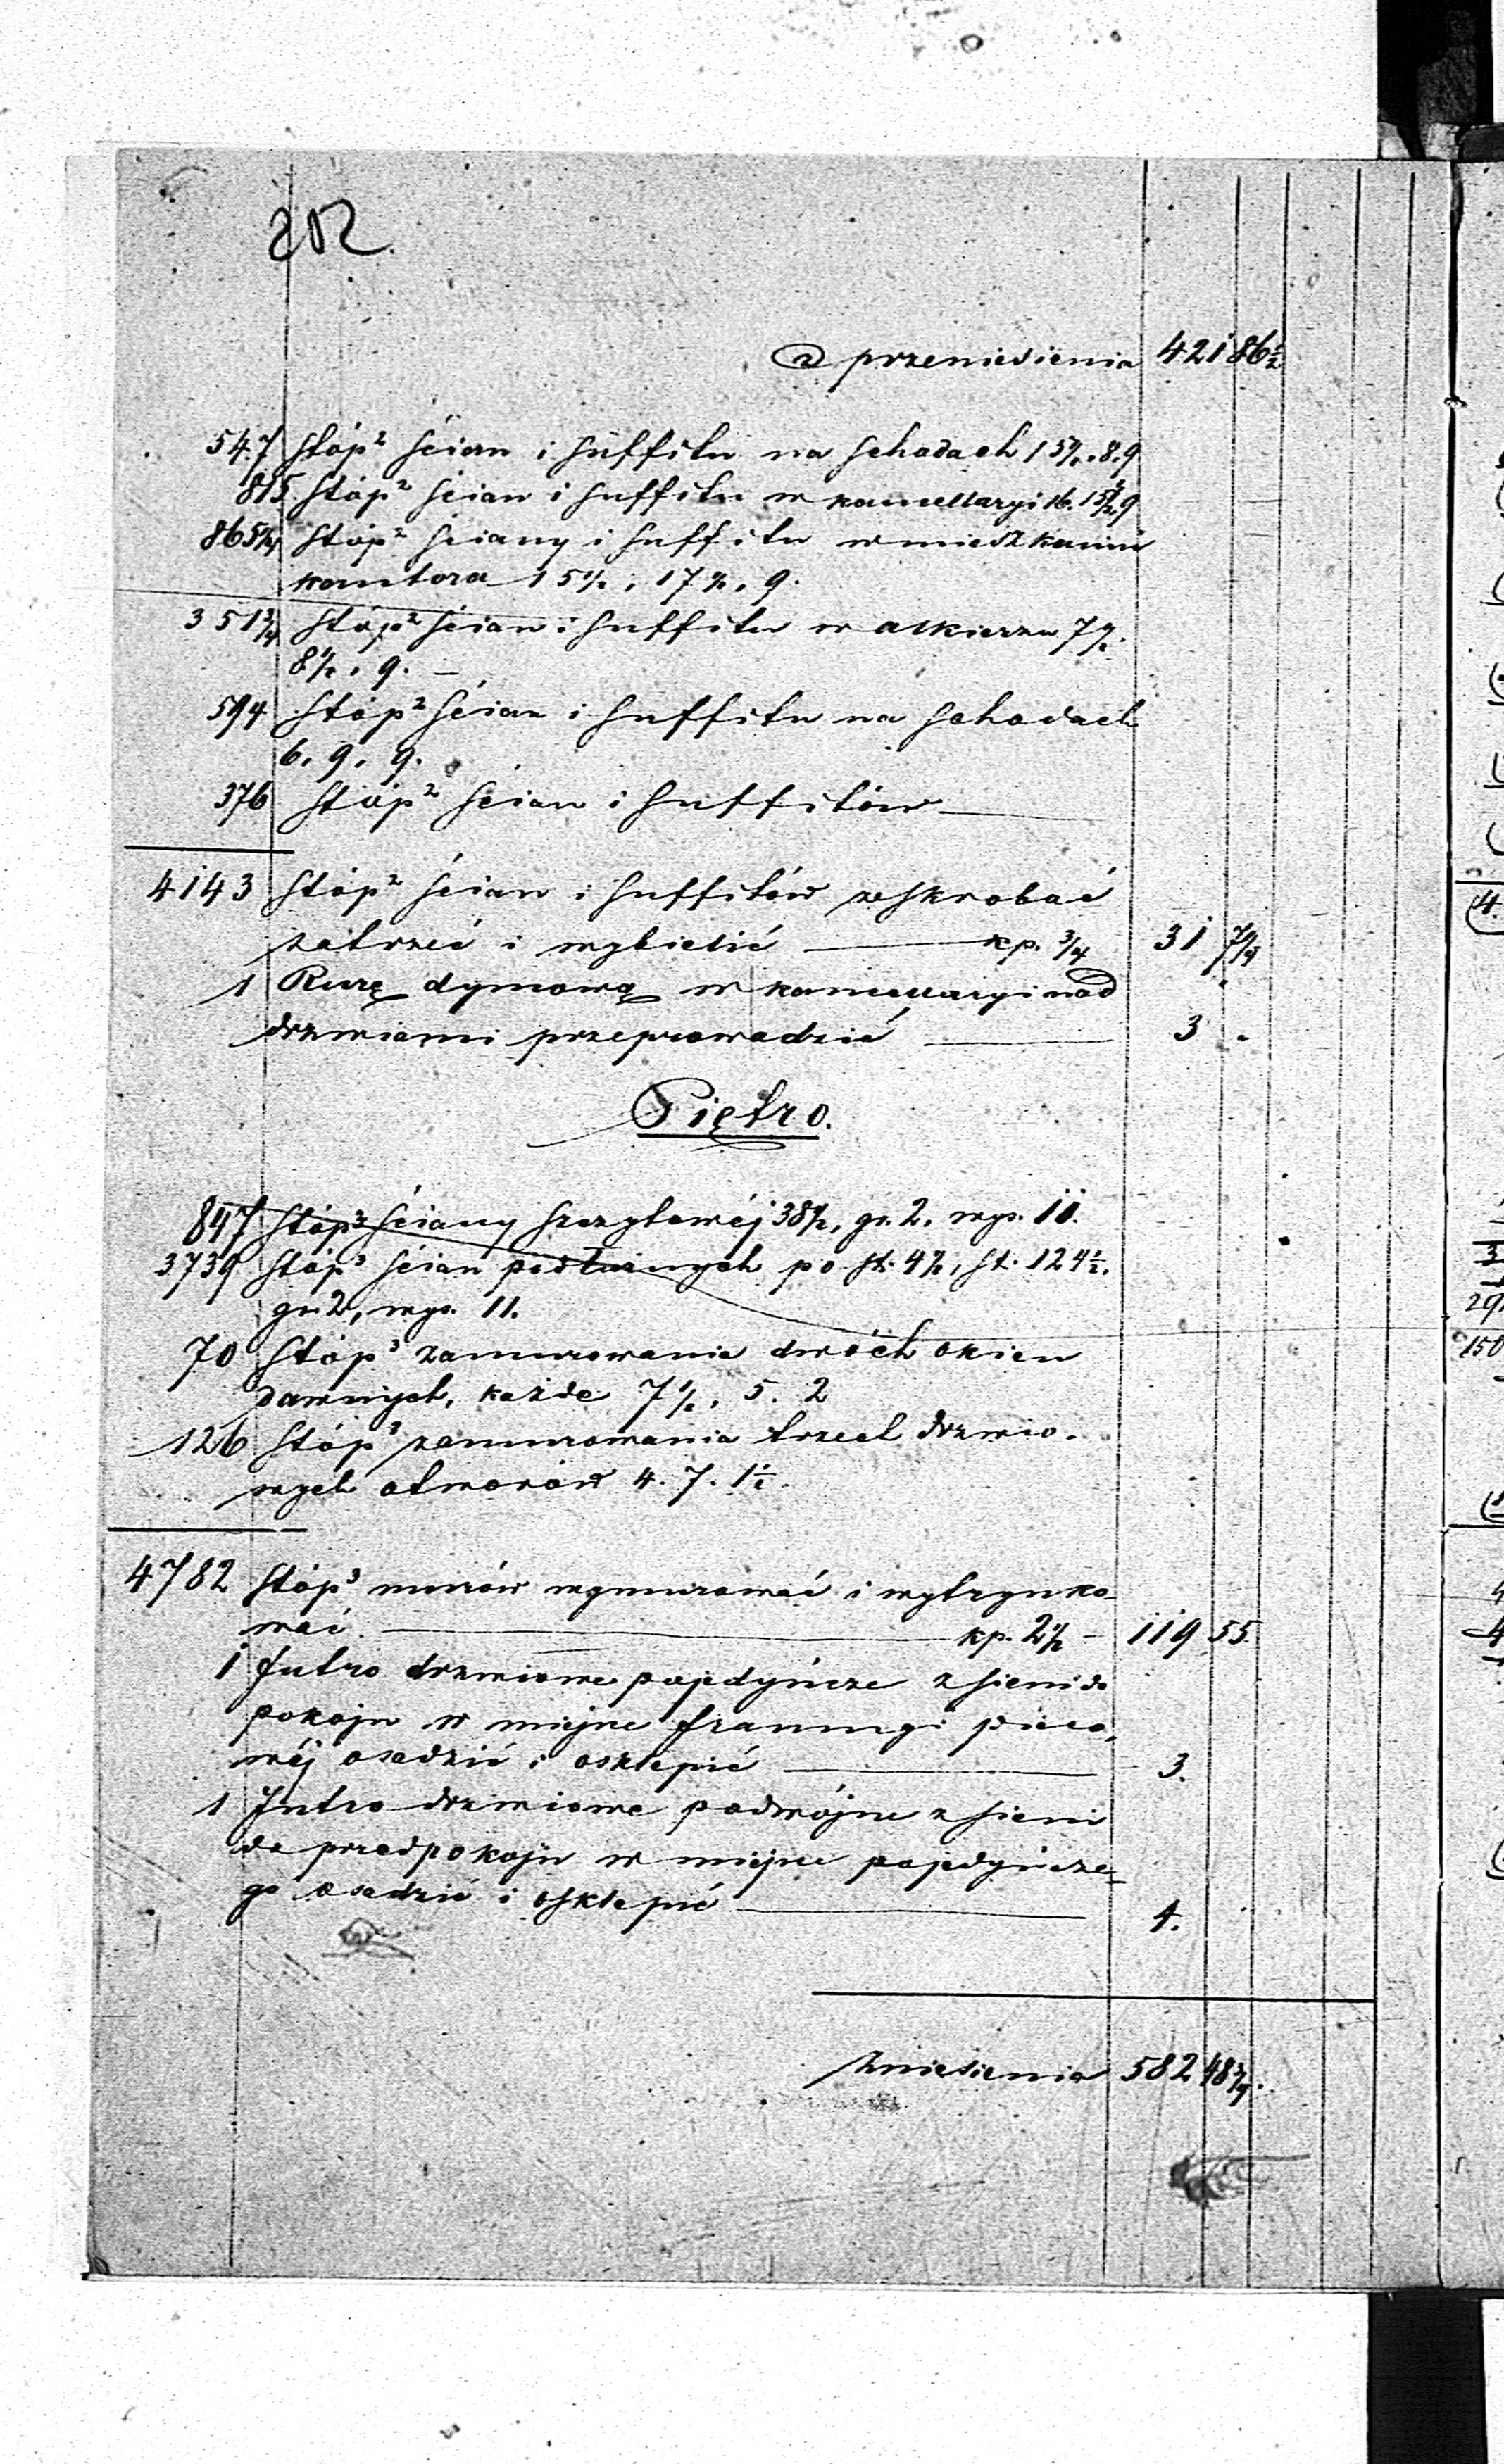 202.
Z przeniesienia 421 86½
547 stóp² ścian i suffitu na schodach 15½. 8. 9
815 stóp² ścian i suffitu w kancellaryi 16. 15½. 9
865¼ stóp² ściany i suffitu w mieszkaniu
kantora 15½, 17½, 9.
351¾ stóp² ścian i suffitu w alkierzu 7½.
8½, 9. —
594 stóp² ścian i suffitu na schodach
6. 9. 9.
376 stóp² ścian i suffitów
4143 stóp² ścian i suffitów zeskrobać
zatrzeć i wybielić — kp. ¾ 31 7¼
1 Rurę dymową w kancellaryi nad
drzwiami przeprowadzić — 3 .
Piętro.
847 stóp³ ściany szczytowéj 38½, gr. 2. wys. 11.
3739 stóp³ ścian podłużnych po st. 4½, st. 124½.
gr. 2, wys. 11.
70 stóp³ zamurowania dwóch okien
dawnych, każde 7½, 5. 2
126 stóp³ zamurowania trzech drzwio-
wych otworów 4. 7. 1½.
4782 stóp³ murów wymurować i wytrynko-
wać. — kp. 2½ — 119 55.
1 futro drzwiowe pojedyńcze z sieni do
pokoju w miejsce framugi pieco-
wéj osadzić i osklepić — 3.
1 futro drzwiowe podwójne z sieni
do przedpokoju w miejsce pojedyńcze-
go osadzić i osklepić — 4.
Zniesienia 582 48¾.